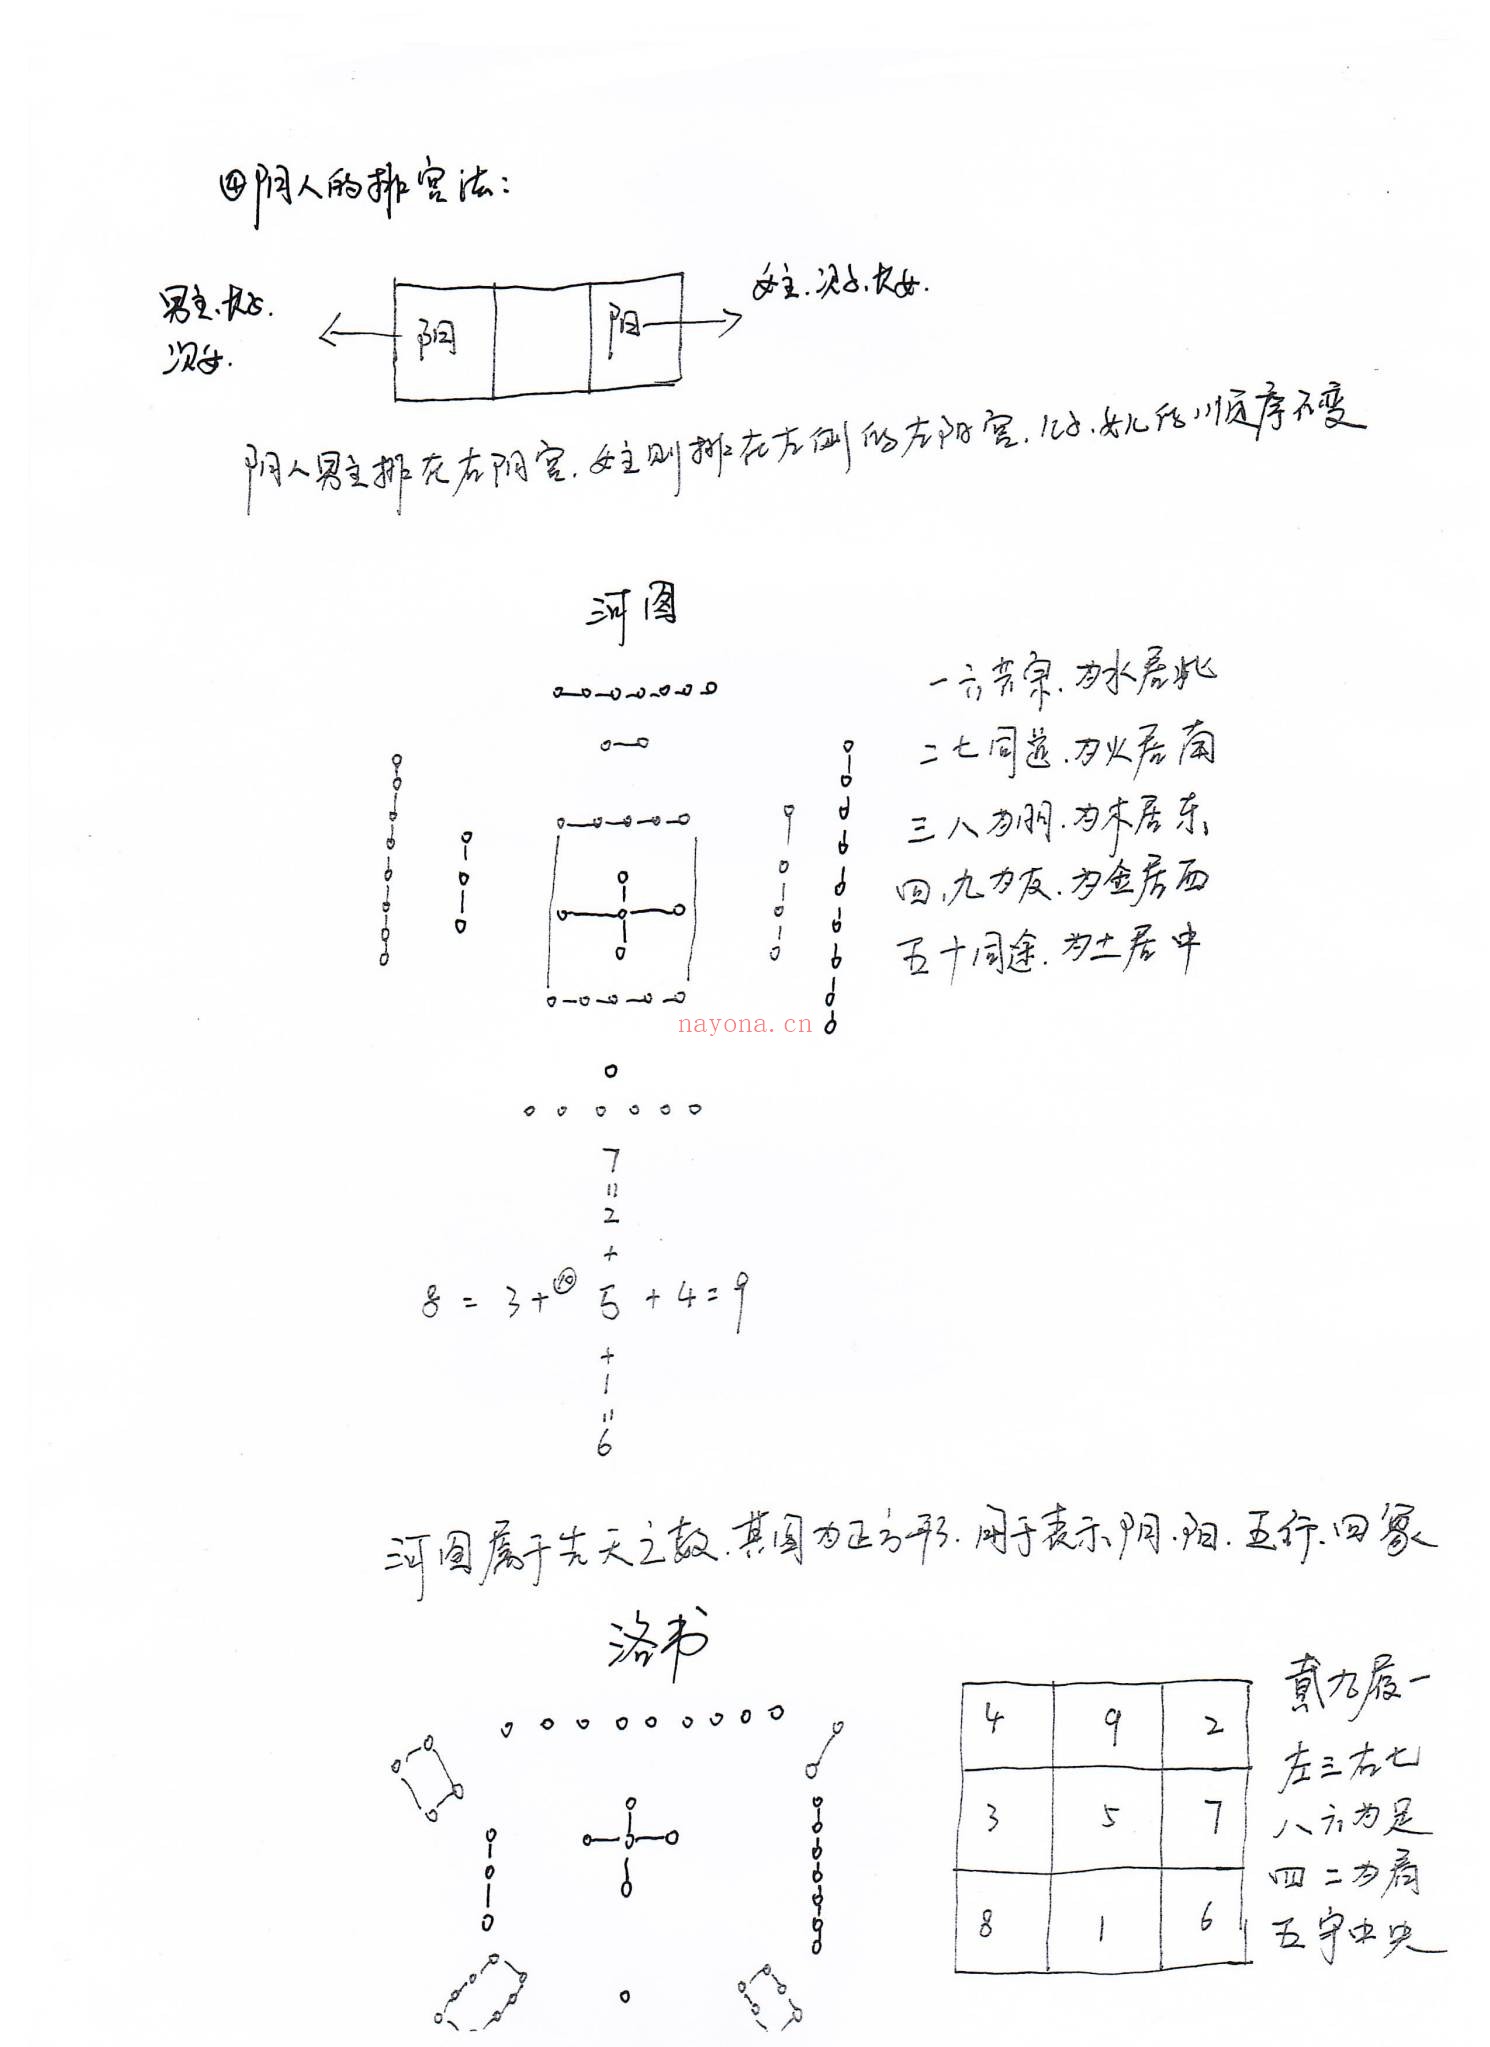 ④阴人的排宫法:
男主、长子.
次女.
阳
阳
女主.次子.长女.
阴人男主排在右阴宫.女主则排在左侧的左阳宫.儿子.女儿的顺序不变
河图
一六共宗.为水居北
二七同道.为火居南
三八为朋.为木居东
四、九为友.为金居西
五十同途.为土居中
nayona.cn
7
=
2
+
8 = 3 + ⑩ 5 + 4 = 9
+
1
=
6
河图属于先天之数.其图为正方形.用于表示阴.阳.五行.四象
洛书
4 9 2
3 5 7
8 1 6
戴九履一
左三右七
八六为足
四二为肩
五守中央